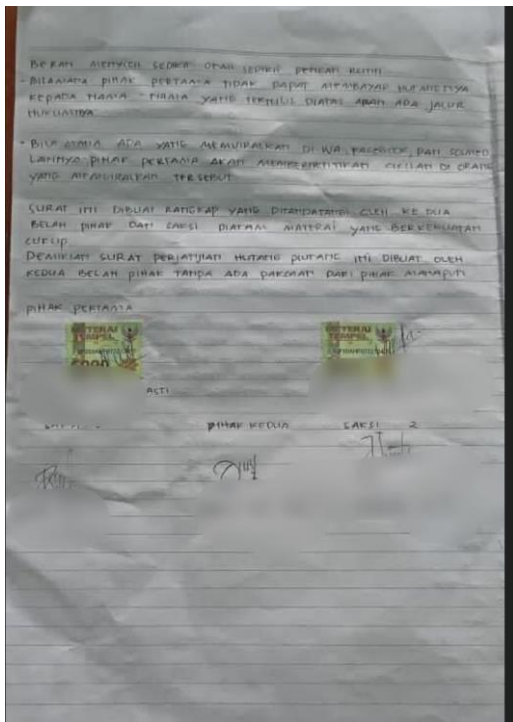 BERAN MENYICIL SEDIKIT DEMI SEDIKIT DENGAN RUTIN
- BILAMANA PIHAK PERTAMA TIDAK DAPAT MEMBAYAR HUTANGNYA
KEPADA NAMA - NAMA YANG TERTULIS DIATAS AKAN ADA JALUR
HUKUMNYA
- BILA MANA ADA YANG MEMVIRALKAN DI WA, FACEBOOK, DAN SOSMED
LAINNYA PIHAK PERTAMA AKAN MEMBERHENTIKAN CICILAN DI ORANG
YANG MEMVIRALKAN TERSEBUT
SURAT INI DIBUAT RANGKAP YANG DITANDATANGI OLEH KE DUA
BELAH PIHAK DAN SAKSI DIATAS MATRAI YANG BERKEKUATAN
CUKUP
DEMIKIAN SURAT PERJANJIAN HUTANG PIUTANG INI DIBUAT OLEH
KEDUA BELAH PIHAK TANPA ADA PAKSAAN DARI PIHAK MANAPUN
PIHAK PERTAMA
METERAI
TEMPEL
METERAI
TEMPEL
6000
ASTI
PIHAK KEDUA
SAKSI 2